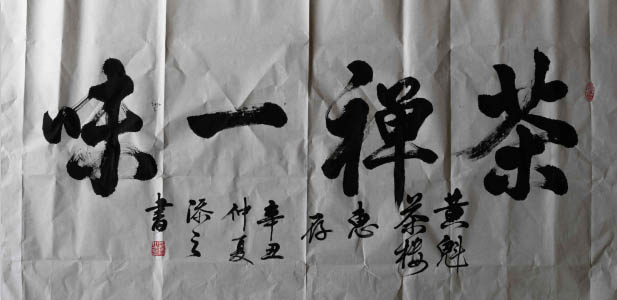 茶禅一味
黄魁
茶楼
惠
存
辛丑
仲夏
添之
書